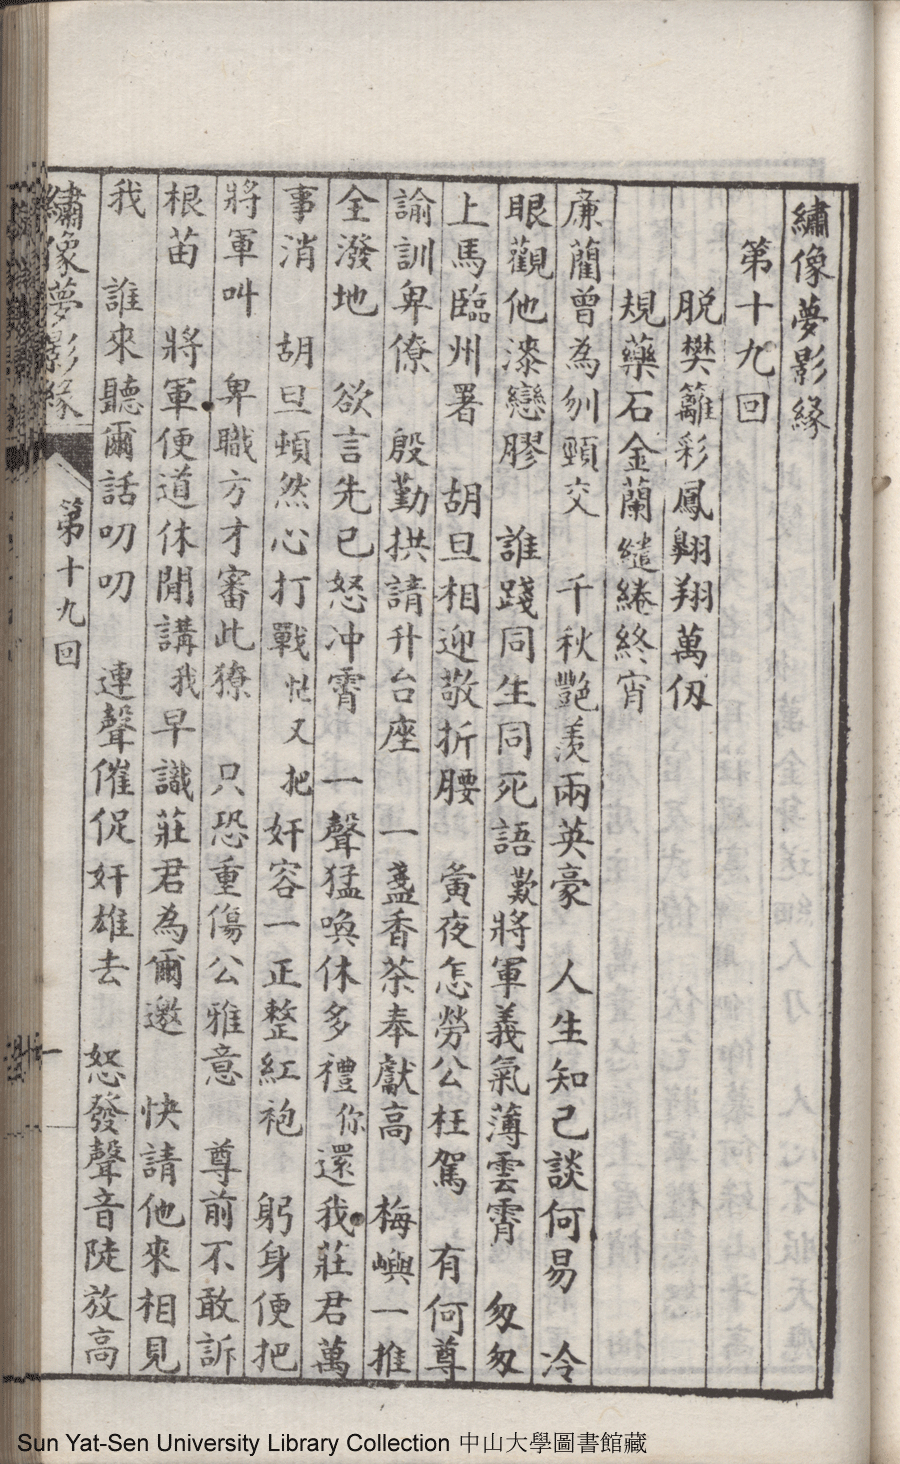 繡像夢影緣
第十九回
脱樊籬彩鳳翺翔萬仭
規藥石金蘭繾綣終宵
㢘藺曾為刎頸交 千秋艷羨兩英豪 人生知己談何易 冷
眼觀他漆戀膠 誰踐同生同死語 歎將軍義氣薄雲霄 匆匆
上馬臨州署 胡旦相迎敬折腰 黃夜怎勞公枉駕 有何尊
諭訓卑僚 殷勤拱請升台座 一盞香茶奉獻高 梅嶼一推
全潑地 欲言先已怒冲霄 一聲猛喚休多禮 你還我莊君萬
事消 胡旦頓然心打戰 恾又把奸容一正整紅袍 躬身便把
將軍叫 卑職方才審此獠 只恐重傷公雅意 尊前不敢訴
根苗 將軍便道休閒講 我早識莊君為爾邀 快請他來相見
我 誰來聽爾話叨叨 連聲催促奸雄去 怒發聲音陡放高
繡像夢影緣 第十九回
Sun Yat-Sen University Library Collection 中山大學圖書館藏